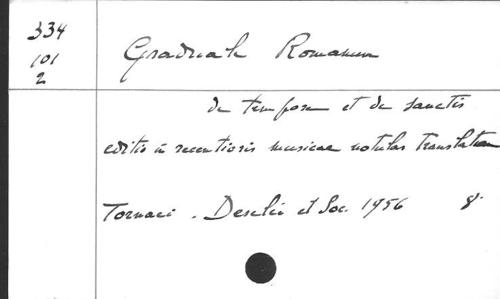 334
101
2
Graduale Romanum
de tempore et de sanctis
editio in recentioris musicae notulas translatum
Tornaci . Desclée et Soc. 1956 8°